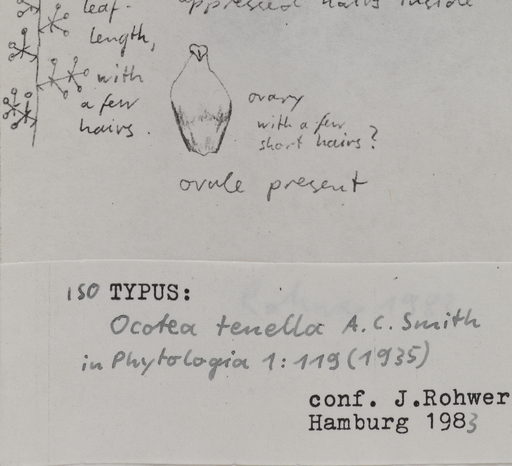 leaf- appressed hairs inside
length,
with
a few
hairs.
ovary
with a few
short hairs?
ovule present
iso TYPUS:
Ocotea tenella A.C. Smith
in Phytologia 1:119 (1935)
conf. J.Rohwer
Hamburg 1983